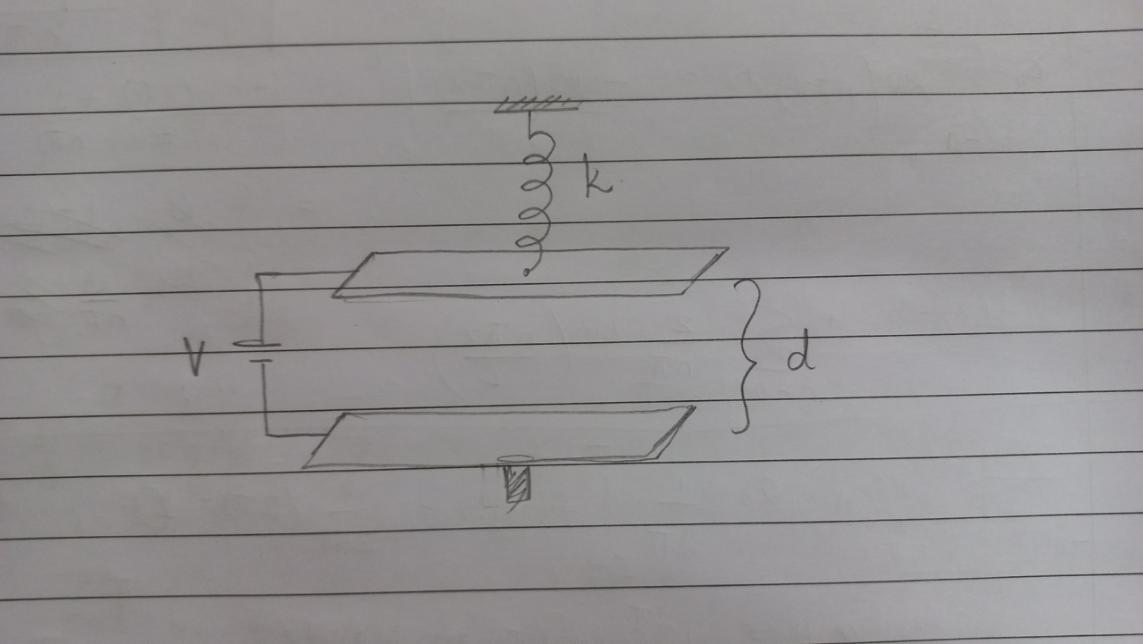 k
V
d